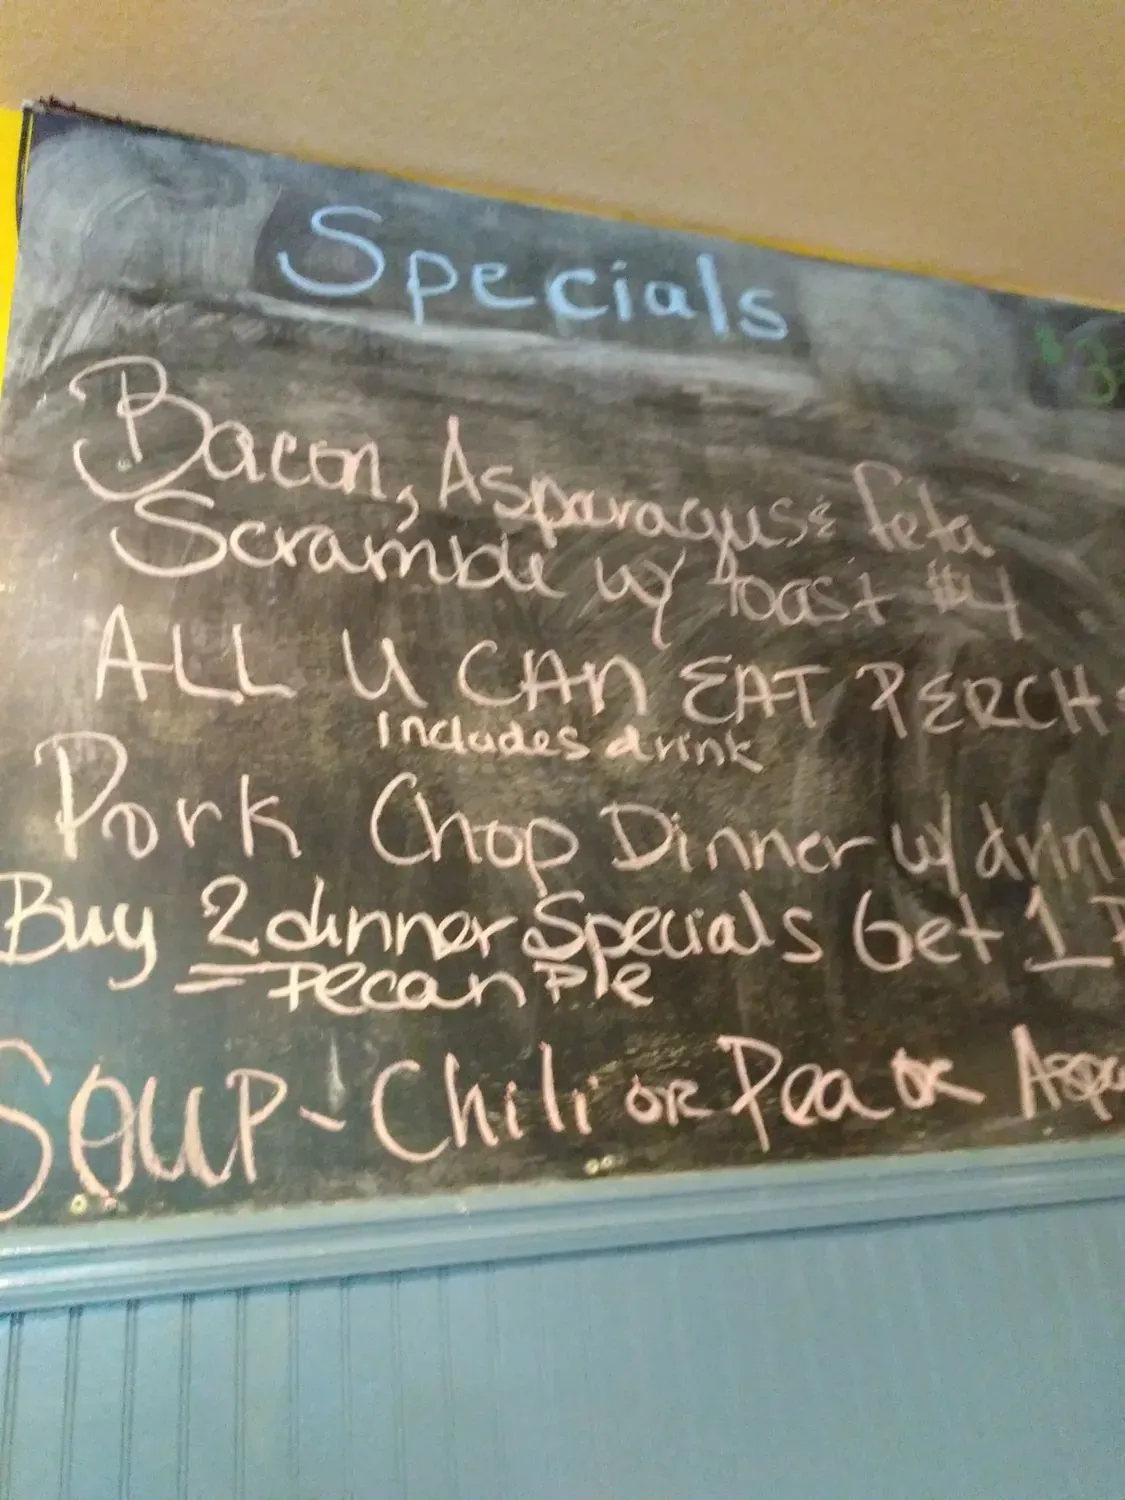 Specials
$3
Bacon, Asparagus & feta
Scramble w/ toast #4
ALL U CAN EAT PERCH
includes drink
Pork Chop Dinner w/ drink
Buy 2 dinner Specials Get 1
Pecan Pie
SOUP - Chili OR Pea OR